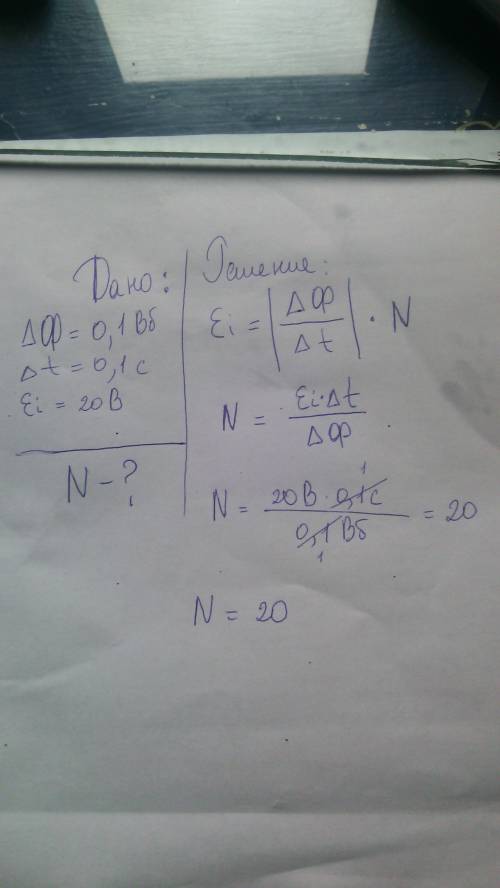 Дано:
ΔФ = 0,1 Вб
Δt = 0,1 с
Ɛi = 20 В
N - ?
Решение:
Ɛi = |ΔФ / Δt| · N
N = Ɛi·Δt / ΔФ
N = 20 В · 0,1 с / 0,1 Вб = 20
1
1
N = 20